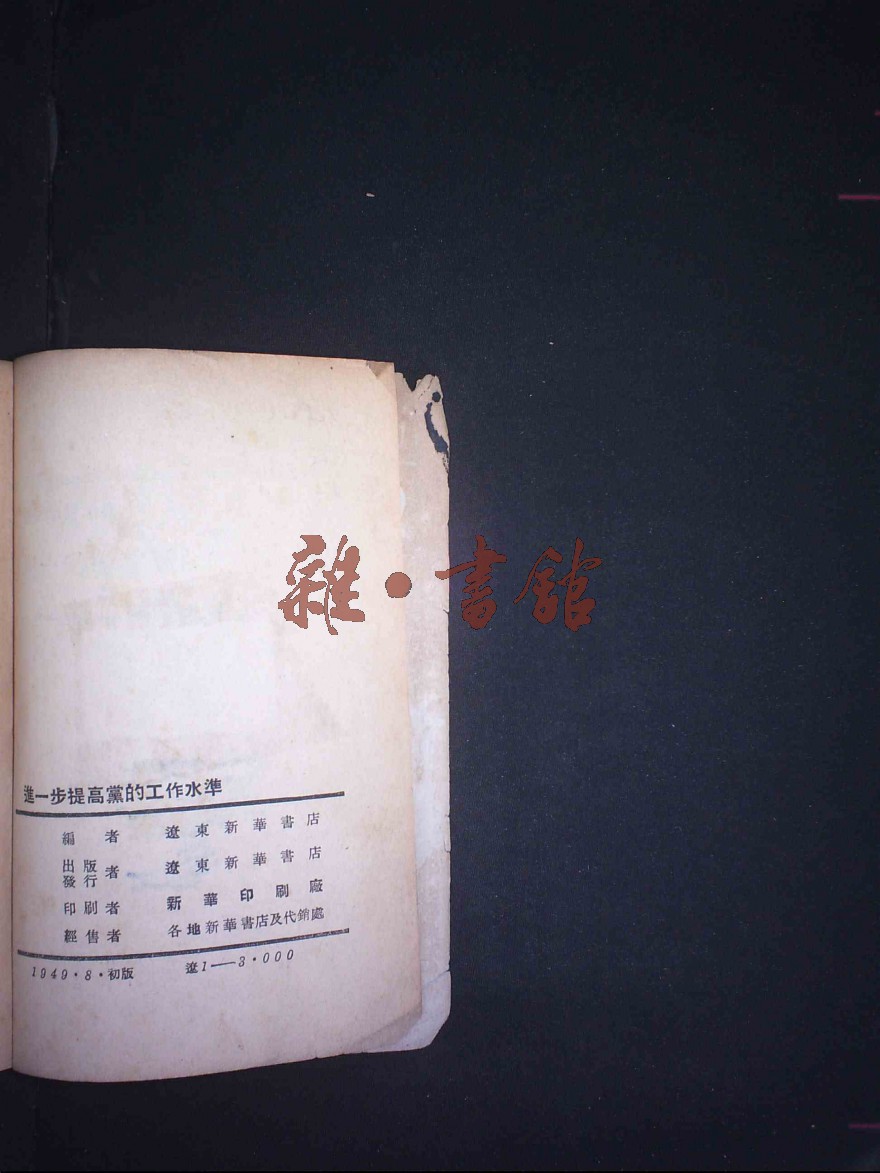 雜·書舘
進一步提高黨的工作水準
編者 遼東新華書店
出版發行者 遼東新華書店
印刷者 新華印刷廠
經售者 各地新華書店及代銷處
1949·8·初版 遼1—3·000